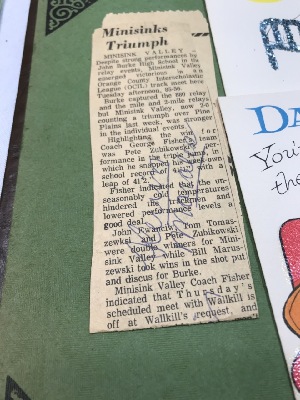 Minisinks
Triumph
MINISINK VALLEY
Despite strong performances by
John Burke High School in the
relay events, Minisink Valley
emerged victorious in an
Orange County Interscholastic
League (OCIL) track meet here
Tuesday afternoon,
Burke captured the 880 relay
and the mile and 2-mile relays
but Minisink Valley, also
counting a triumph over Pine
Plains last week, was stronger
in the individual events.
Highlighting the win for
Coach George Fisher's team
was Pete Zubikowski's per-
formance in the triple jump, in
which he snapped his own
school record of with a
leap of 41'2".
Fisher indicated that the un-
seasonably cold temperatures
hindered the trackmen and
lowered performance levels a
good deal.
John Kwancia, Tom Tonas-
zewski and Pete Zubikowski
were double winners for Mini-
sink Valley while Bill Marus-
zewski took wins in the shot put
and discus for Burke.
Minisink Valley Coach Fisher
indicated that Thursday's
scheduled meet with Wallkill is
off at Wallkill's request, and
DA
You'
the